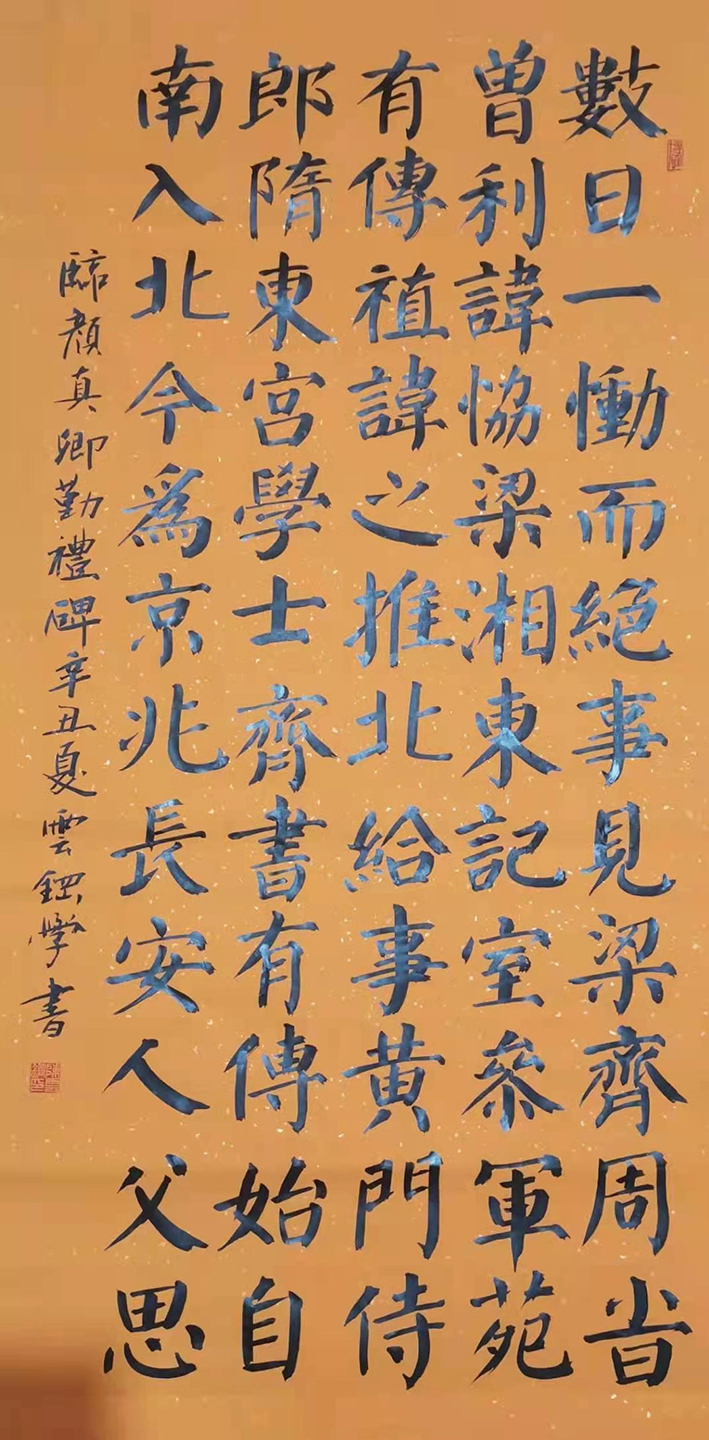 數日一慟而絕事見梁齊周
曽利諱恊梁湘東記室叅軍苑
有傳禃諱之推北給事黃門侍
郎隋東宮學士齊書有傳始自
南入北今為京兆長安人父思
臨顏真卿勤禮碑辛丑夏雲學書